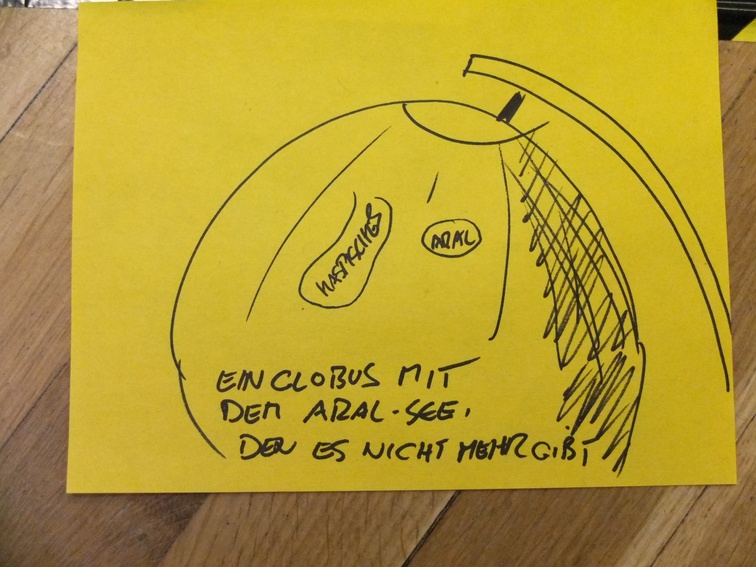 ARAL
EIN GLOBUS MIT
DEM ARAL-SEE,
DEN ES NICHT MEHR GIBT